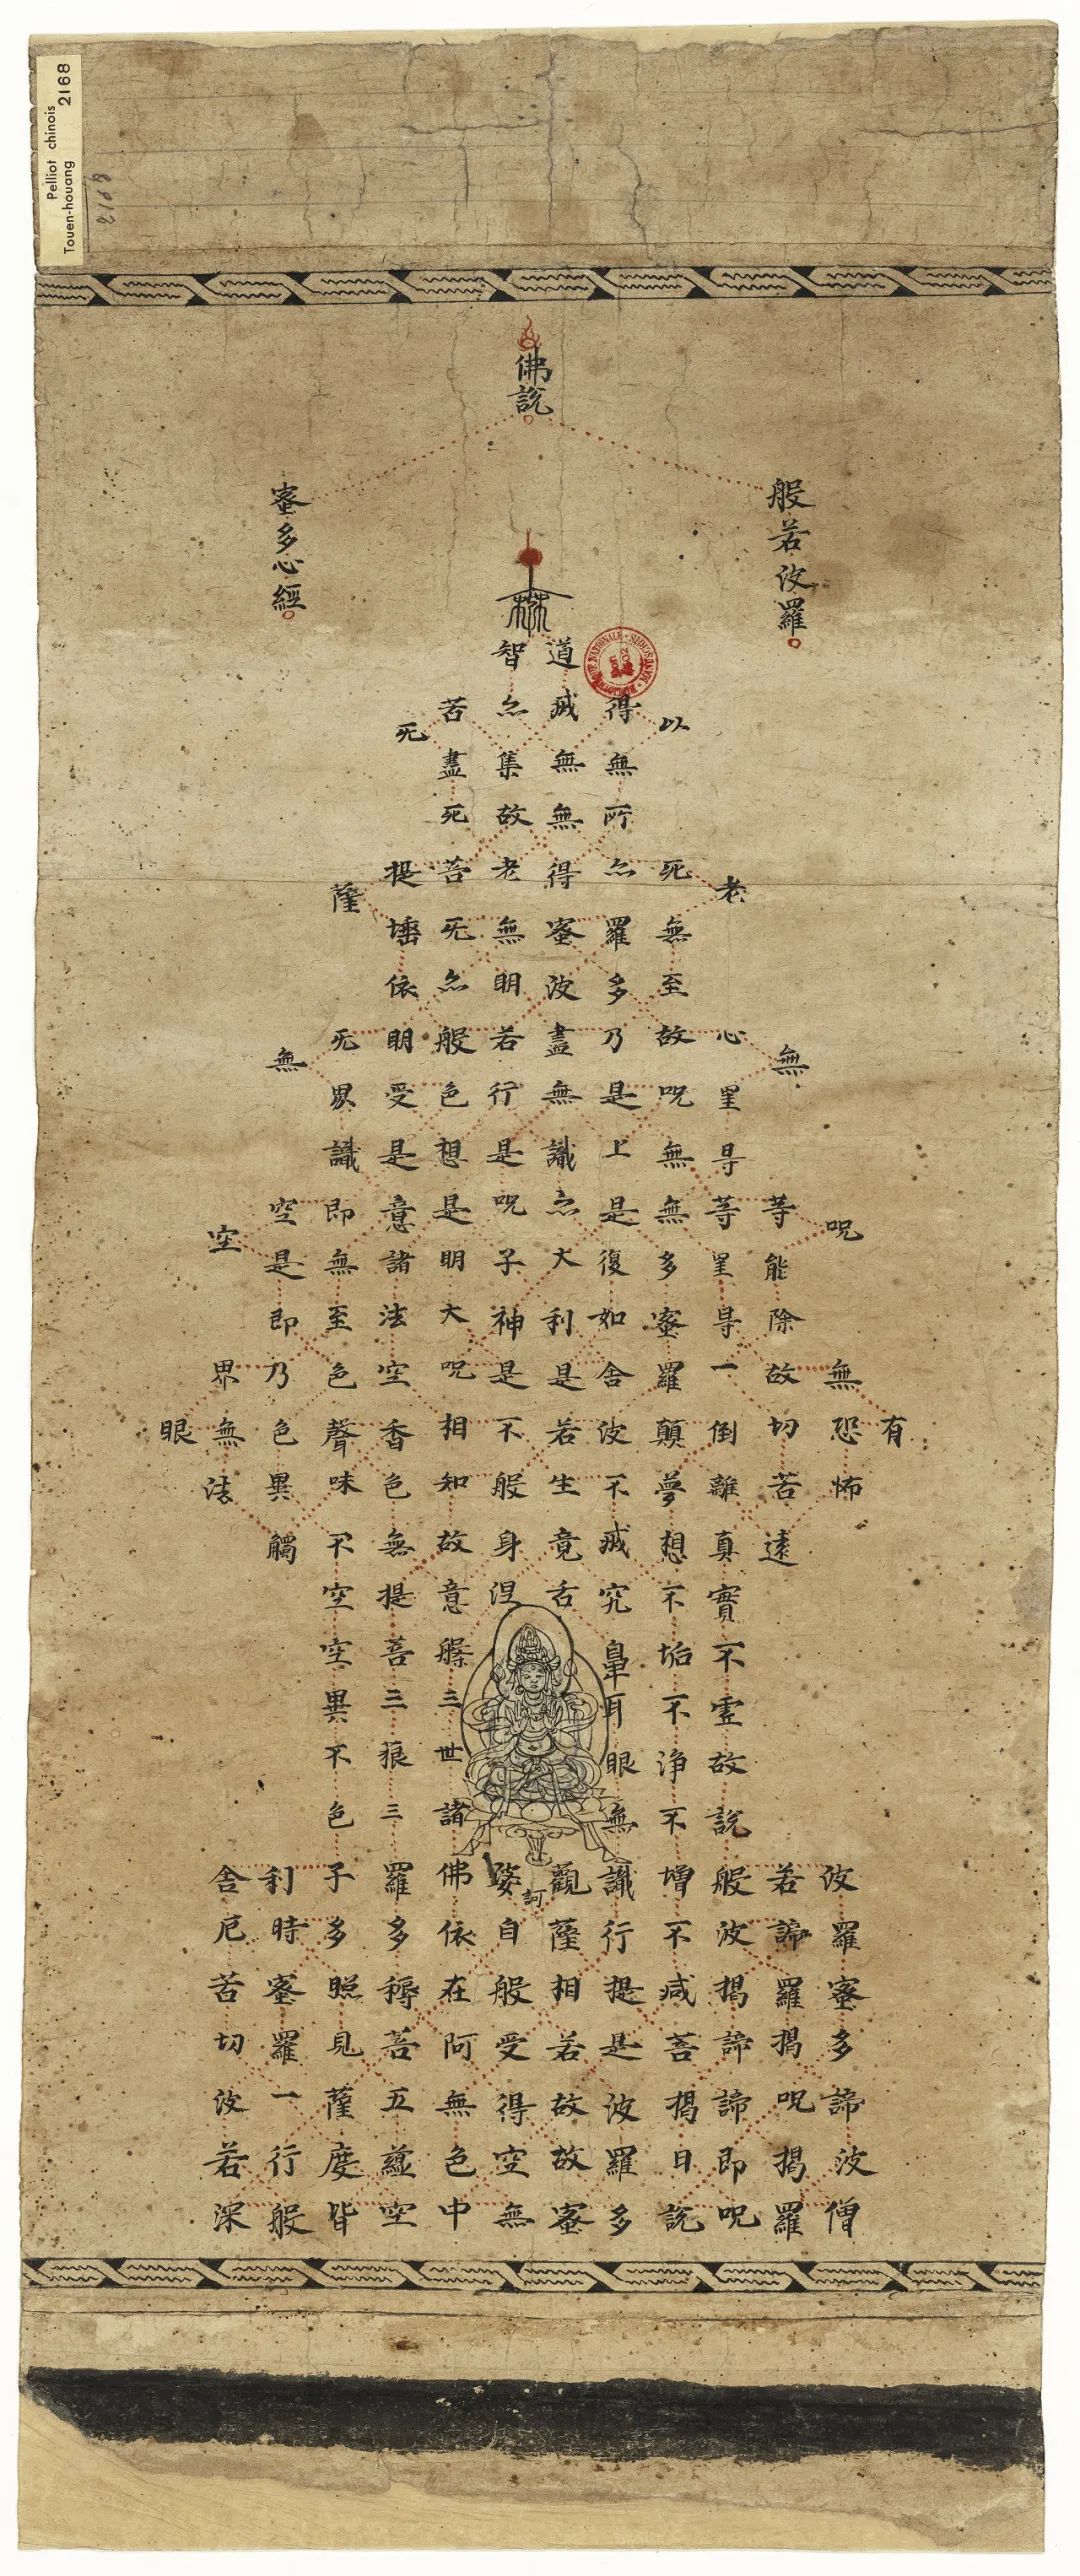 佛說
般若波羅
蜜多心經
有
呪無恐怖波羅蜜多諦波僧
無等能除故切苦遠若諦羅揭呪揭羅
老心罣㝵等罣㝵一倒離真實不虛故說般波揭諦諦即呪
以死無至故呪無無多蜜羅顛夢想不垢不淨不增不減菩揭曰說
得無所亦羅多乃是上是復如舍波不滅究鼻耳眼無識行提是波羅多
道滅無無得蜜波盡無識亦大利是若生竟舌觀薩相若故故蜜
訶
智亦集故老無明若行是呪子神是不般身涅婆自般受得空無
苦盡死菩无亦般色想是明大呪相知故意槃三世諸佛依在阿無色中
无提埵依明受是意諸法空香色無提菩三狼三羅多耨菩五蘊空
薩无界識即無至色聲味不空空異不色子多照見薩度皆
無空是即乃色異觸利時蜜羅一行般
空界無法舍厄苦切波若深
眼
Pelliot chinois 2168
Touen-houang
2168